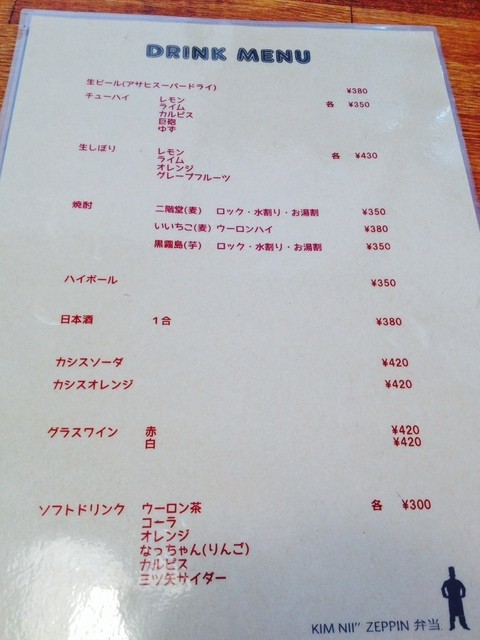 DRINK MENU
生ビール(アサヒスーパードライ) ¥380
チューハイ レモン 各 ¥350
ライム
カルピス
巨砲
ゆず
生しぼり レモン 各 ¥430
ライム
オレンジ
グレープフルーツ
焼酎 二階堂(麦) ロック・水割り・お湯割 ¥350
いいちこ(麦) ウーロンハイ ¥380
黒霧島(芋) ロック・水割り・お湯割 ¥350
ハイボール ¥350
日本酒 1合 ¥380
カシスソーダ ¥420
カシスオレンジ ¥420
グラスワイン 赤 ¥420
白 ¥420
ソフトドリンク ウーロン茶 各 ¥300
コーラ
オレンジ
なっちゃん(りんご)
カルピス
三ツ矢サイダー
KIM NII" ZEPPIN 弁当